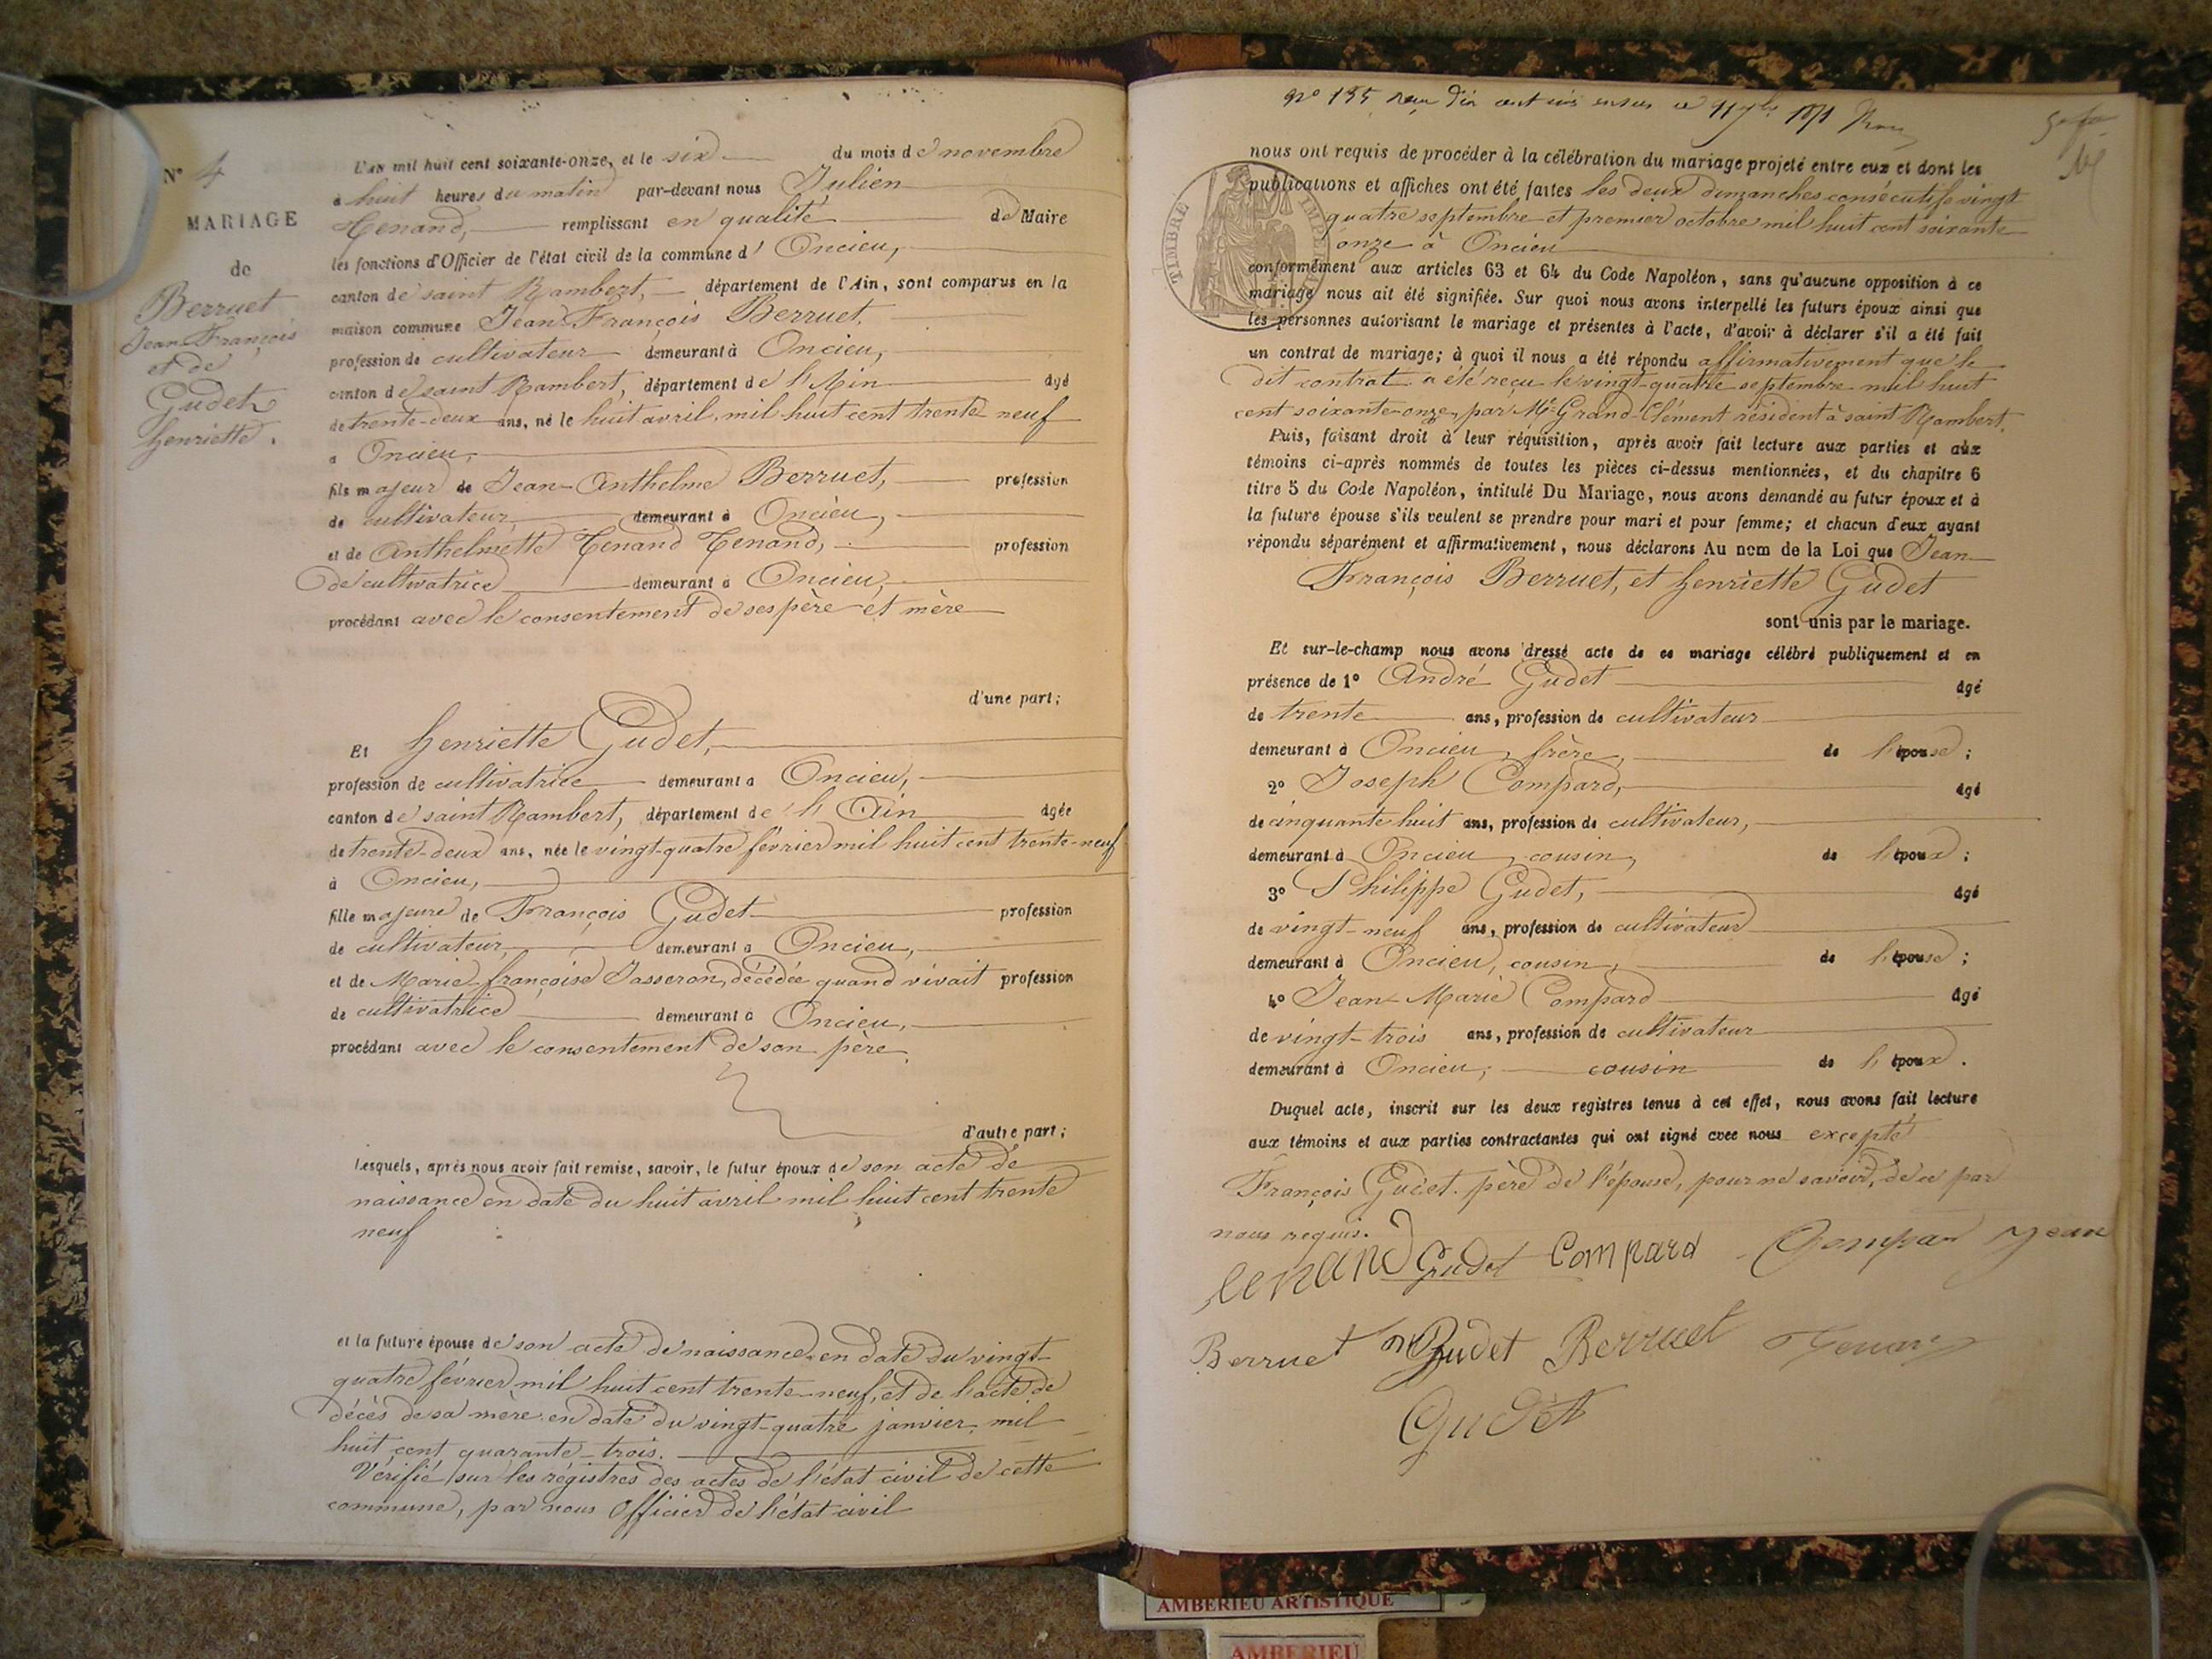 N° 4
MARIAGE
de
Berruet
Jean François
et de
Gudet
henriette.
L'an mil huit cent soixante-onze, et le six du mois de novembre
à huit heures du matin par-devant nous Julien
Tenand, remplissant en qualité de Maire
les fonctions d'Officier de l'état civil de la commune d' Oncieu,
canton de saint Rambert, département de l'Ain, sont comparus en la
maison commune Jean-François Berruet,
profession de cultivateur demeurant à Oncieu,
canton de saint Rambert, département de l'Ain âgé
de trente-deux ans, né le huit avril, mil huit cent trente neuf
à Oncieu,
fils majeur de Jean-Anthelme Berruet, profession
de cultivateur, demeurant à Oncieu,
et de Anthelmette Tenand Tenand, profession
de cultivatrice demeurant à Oncieu,
procédant avec le consentement de ses père et mère
d'une part;
Et henriette Gudet,
profession de cultivatrice demeurant à Oncieu,
canton de saint Rambert, département de l'Ain âgée
de trente-deux ans, née le vingt-quatre février mil huit cent trente-neuf
à Oncieu,
fille majeure de François Gudet profession
de cultivateur, demeurant à Oncieu,
et de Marie françoise Jasseron, décédée quand vivait profession
de cultivatrice demeurant à Oncieu,
procédant avec le consentement de son père,
d'autre part;
Lesquels, après nous avoir fait remise, savoir, le futur époux de son acte de
naissance en date du huit avril mil huit cent trente
neuf
et la future épouse de son acte de naissance, en date du vingt-
quatre février mil huit cent trente-neuf, et de l'acte de
décès de sa mère en date du vingt-quatre janvier, mil
huit cent quarante-trois.
Vérifié sur les régistres des actes de l'état civil de cette
commune, par nous Officier de l'état civil
N° 135 reçu dix centimes
TIMBRE IMPE
nous ont requis de procéder à la célébration du mariage projeté entre eux et dont les
publications et affiches ont été faites les deux dimanches consécutifs vingt
quatre septembre et premier octobre mil huit cent soixante
onze à Oncieu
conformément aux articles 63 et 64 du Code Napoléon, sans qu'aucune opposition à ce
mariage nous ait été signifiée. Sur quoi nous avons interpellé les futurs époux ainsi que
les personnes autorisant le mariage et présentes à l'acte, d'avoir à déclarer s'il a été fait
un contrat de mariage; à quoi il nous a été répondu affirmativement que le
dit contrat a été reçu le vingt-quatre septembre mil huit
cent soixante-onze, par Me Grand-Clément résident à saint Rambert.
Puis, faisant droit à leur réquisition, après avoir fait lecture aux parties et aux
témoins ci-après nommés de toutes les pièces ci-dessus mentionnées, et du chapitre 6
titre 5 du Code Napoléon, intitulé Du Mariage, nous avons demandé au futur époux et à
la future épouse s'ils veulent se prendre pour mari et pour femme; et chacun d'eux ayant
répondu séparément et affirmativement, nous déclarons Au nom de la Loi que Jean
François Berruet, et henriette Gudet
sont unis par le mariage.
Et sur-le-champ nous avons dressé acte de ce mariage célébré publiquement et en
présence de 1° André Gudet âgé
de trente ans, profession de cultivateur
demeurant à Oncieu, frère, de l'épouse;
2° Joseph Compard, âgé
de cinquante huit ans, profession de cultivateur,
demeurant à Oncieu, cousin, de l'époux;
3° Philippe Gudet, âgé
de vingt-neuf ans, profession de cultivateur
demeurant à Oncieu, cousin, de l'épouse;
4° Jean-Marie Compard âgé
de vingt-trois ans, profession de cultivateur
demeurant à Oncieu, cousin de l'époux.
Duquel acte, inscrit sur les deux registres tenus à cet effet, nous avons fait lecture
aux témoins et aux parties contractantes qui ont signé avec nous excepté
François Gudet père de l'épouse, pour ne savoir, de ce par
nous requis.
Tenand Gudet Compard Compar Jean
Berruet Gudet Berruet Tenand
Gudet
AMBERIEU ARTISTIQUE
AMBERIEU